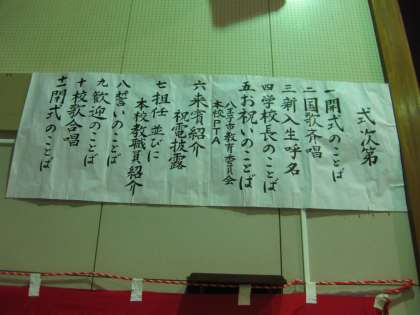 式次第
一 開式のことば
二 国歌斉唱
三 新入生呼名
四 学校長のことば
五 お祝いのことば
八王子市教育委員会
本校PTA
六 来賓紹介
祝電披露
七 担任 並びに
本校教職員紹介
八 誓いのことば
九 歓迎のことば
十 校歌合唱
十一 閉式のことば